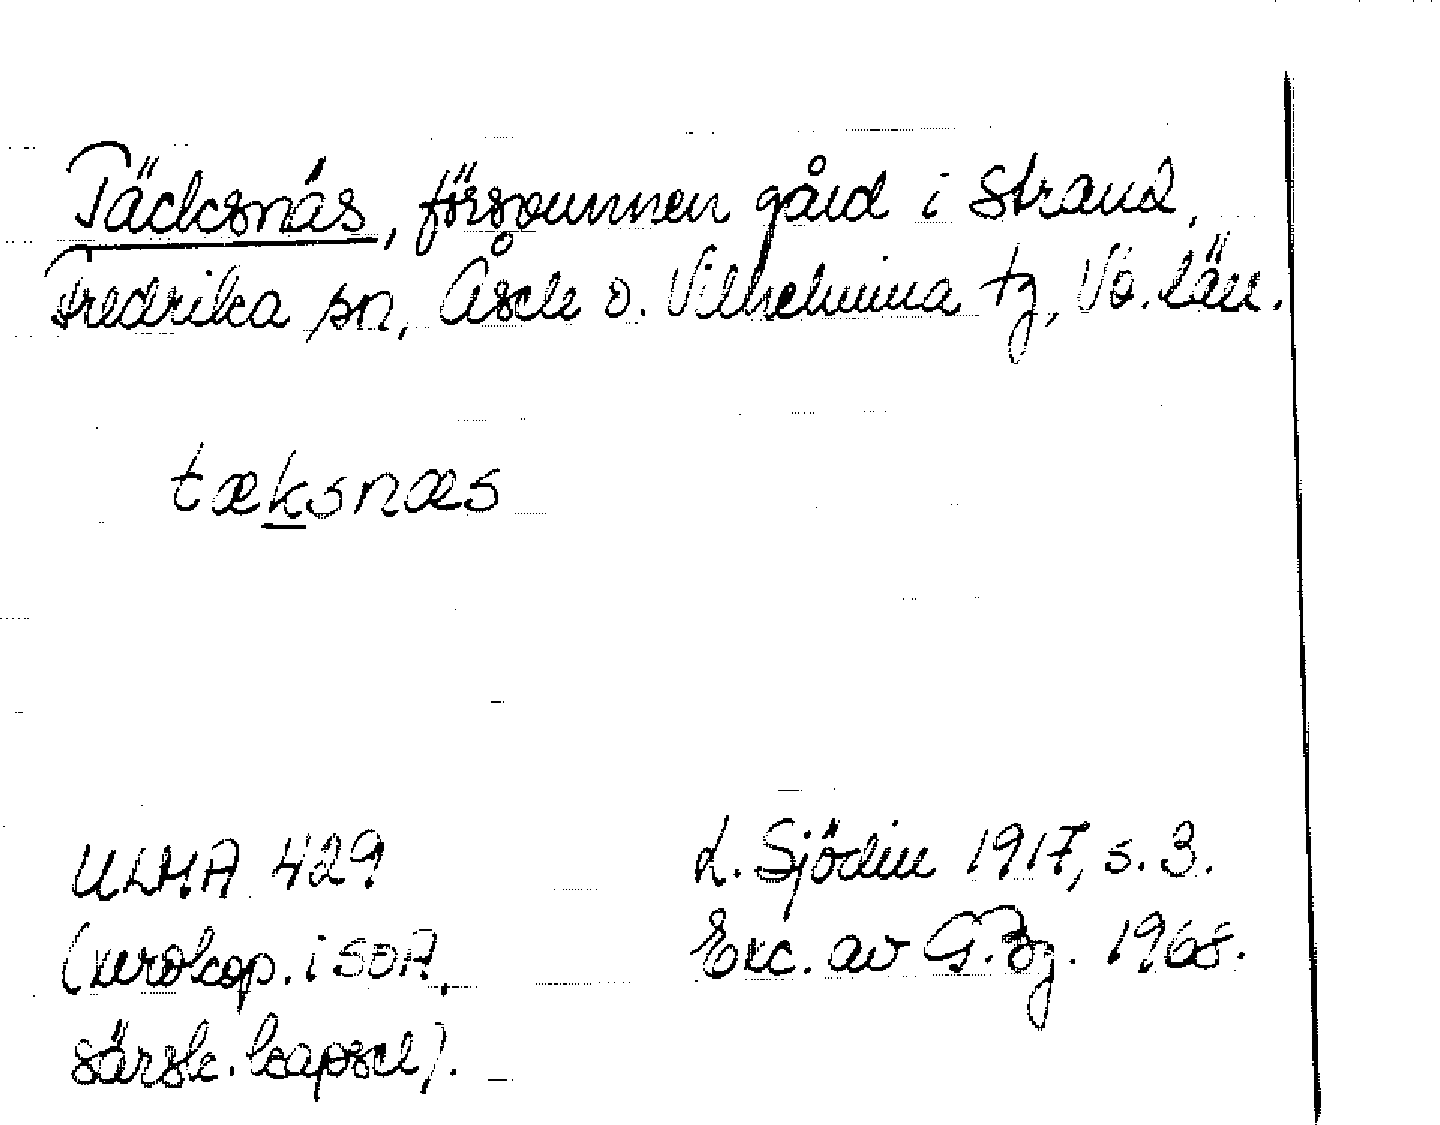 Täcksnäs, försvunnen gård i Strand,
Fredrika sn, Åsele o. Vilhelmina tg, Vb. län.
tæksnæs
ULMA 429
(xerokop. i SOA,
särsk. kapsel).
L. Sjödin 1917, s. 3.
Exc. av G. Bg. 1968.